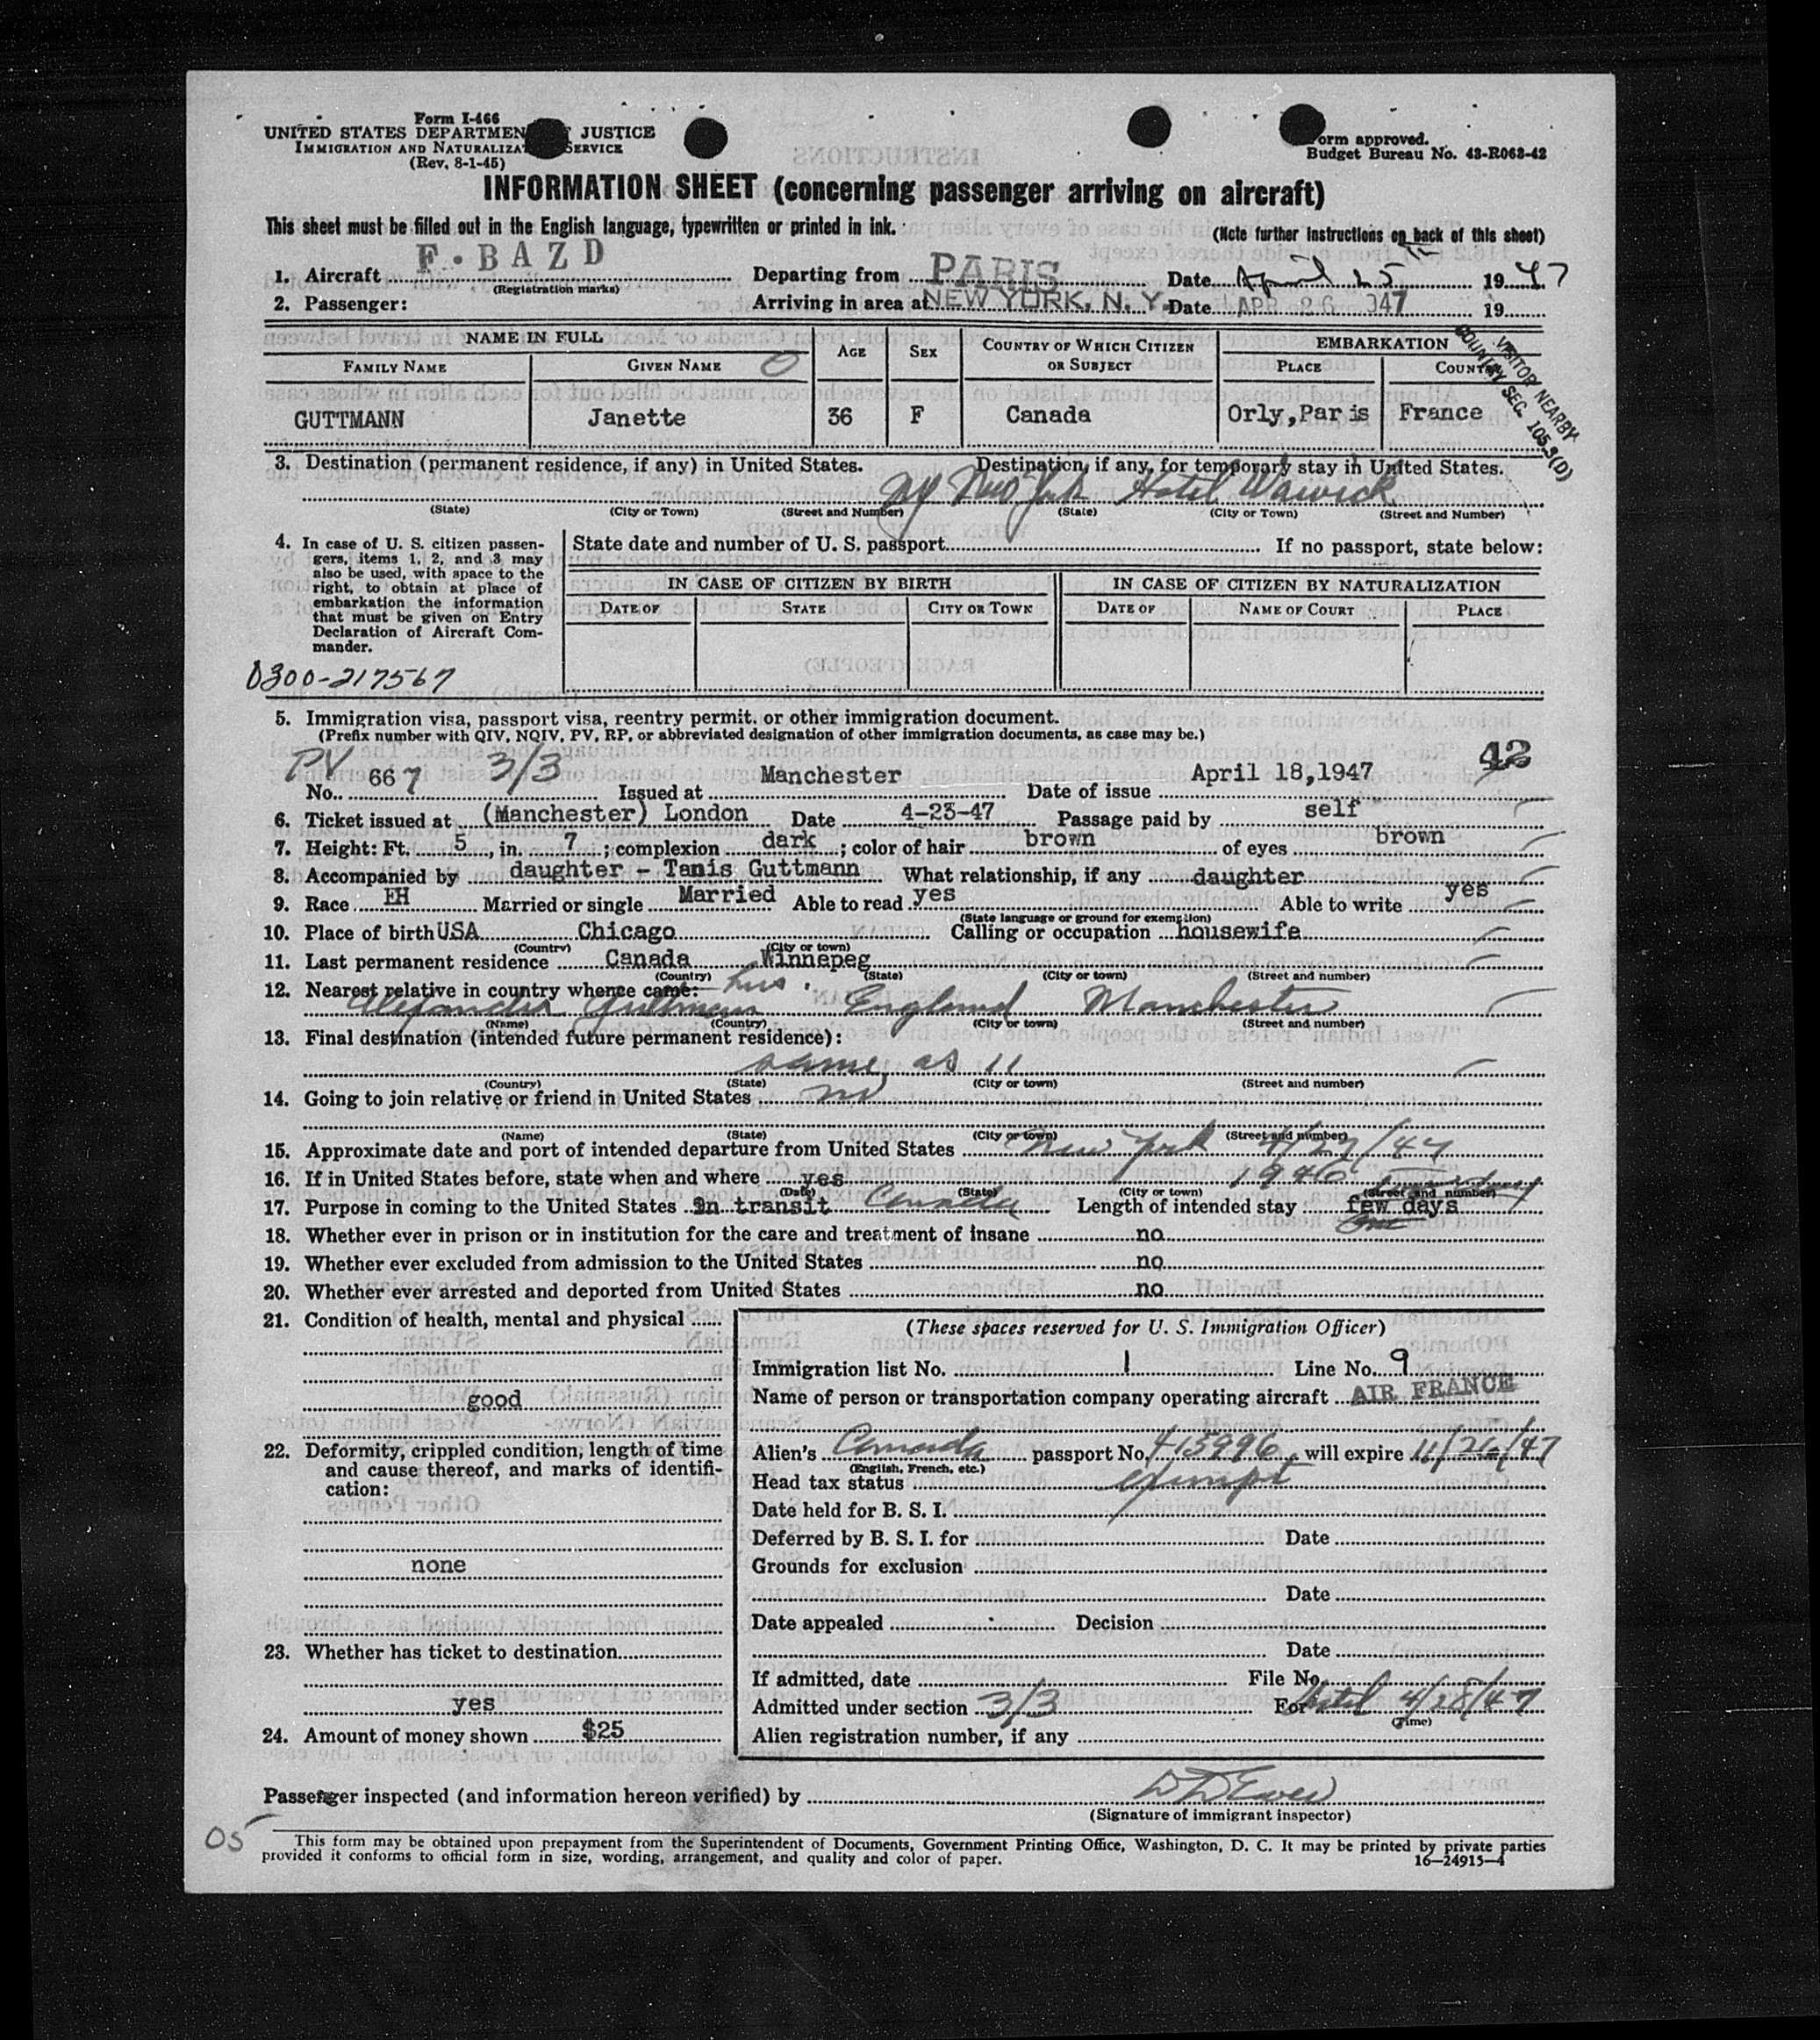 Form I-466
UNITED STATES DEPARTMENT JUSTICE
IMMIGRATION AND NATURALIZAT SERVICE
(Rev. 8-1-45)
orm approved.
Budget Bureau No. 43-R063-42
INFORMATION SHEET (concerning passenger arriving on aircraft)
This sheet must be filled out in the English language, typewritten or printed in ink.
(Note further instructions on back of this sheet)
1. Aircraft F·BAZD Departing from PARIS Date April 25 1947
(Registration marks)
2. Passenger: Arriving in area at NEW YORK, N. Y. Date APR 26 947 19
NAME IN FULL AGE SEX COUNTRY OF WHICH CITIZEN OR SUBJECT EMBARKATION
FAMILY NAME GIVEN NAME O PLACE COUNTRY
VISITOR NEARBY
COUNTRY SEC. 105.3(D)
GUTTMANN Janette 36 F Canada Orly,Paris France
3. Destination (permanent residence, if any) in United States. Destination, if any, for temporary stay in United States.
NY New York Hotel Warwick
(State) (City or Town) (Street and Number) (State) (City or Town) (Street and Number)
4. In case of U. S. citizen passen-
gers, items 1, 2, and 3 may
also be used, with space to the
right, to obtain at place of
embarkation the information
that must be given on Entry
Declaration of Aircraft Com-
mander.
State date and number of U. S. passport If no passport, state below:
IN CASE OF CITIZEN BY BIRTH IN CASE OF CITIZEN BY NATURALIZATION
DATE OF STATE CITY OR TOWN DATE OF NAME OF COURT PLACE
0300-217567
5. Immigration visa, passport visa, reentry permit, or other immigration document.
(Prefix number with QIV, NQIV, PV, RP, or abbreviated designation of other immigration documents, as case may be.)
42
PV No. 667 3/3 Issued at Manchester Date of issue April 18,1947
6. Ticket issued at (Manchester) London Date 4-23-47 Passage paid by self
7. Height: Ft. 5, in. 7; complexion dark; color of hair brown of eyes brown
8. Accompanied by daughter - Tanis Guttmann What relationship, if any daughter
9. Race EH Married or single Married Able to read yes Able to write yes
(State language or ground for exemption)
10. Place of birth USA Chicago Calling or occupation housewife
(Country) (City or town)
11. Last permanent residence Canada Winnepeg
(Country) (State) (City or town) (Street and number)
12. Nearest relative in country whence came: hus.
Alexander Guttmann England Manchester
(Name) (Country) (City or town) (Street and number)
13. Final destination (intended future permanent residence):
same as 11
(Country) (State) (City or town) (Street and number)
14. Going to join relative or friend in United States no
(Name) (State) (City or town) (Street and number)
15. Approximate date and port of intended departure from United States New York 4/27/47
16. If in United States before, state when and where yes 1946
(Date) (State) (City or town) (Street and number)
17. Purpose in coming to the United States In transit Canada Length of intended stay few days
18. Whether ever in prison or in institution for the care and treatment of insane no
19. Whether ever excluded from admission to the United States no
20. Whether ever arrested and deported from United States no
21. Condition of health, mental and physical
good
22. Deformity, crippled condition, length of time
and cause thereof, and marks of identifi-
cation:
none
23. Whether has ticket to destination
yes
24. Amount of money shown $25
(These spaces reserved for U. S. Immigration Officer)
Immigration list No. 1 Line No. 9
Name of person or transportation company operating aircraft AIR FRANCE
Alien's Canada passport No. 415996, will expire 11/26/47
(English, French, etc.)
Head tax status exempt
Date held for B. S. I.
Deferred by B. S. I. for Date
Grounds for exclusion
Date
Date appealed Decision
Date
If admitted, date File No.
Admitted under section 3/3 For until 4/28/47
(Time)
Alien registration number, if any
Passenger inspected (and information hereon verified) by
(Signature of immigrant inspector)
05
This form may be obtained upon prepayment from the Superintendent of Documents, Government Printing Office, Washington, D. C. It may be printed by private parties
provided it conforms to official form in size, wording, arrangement, and quality and color of paper.
16—24915-4